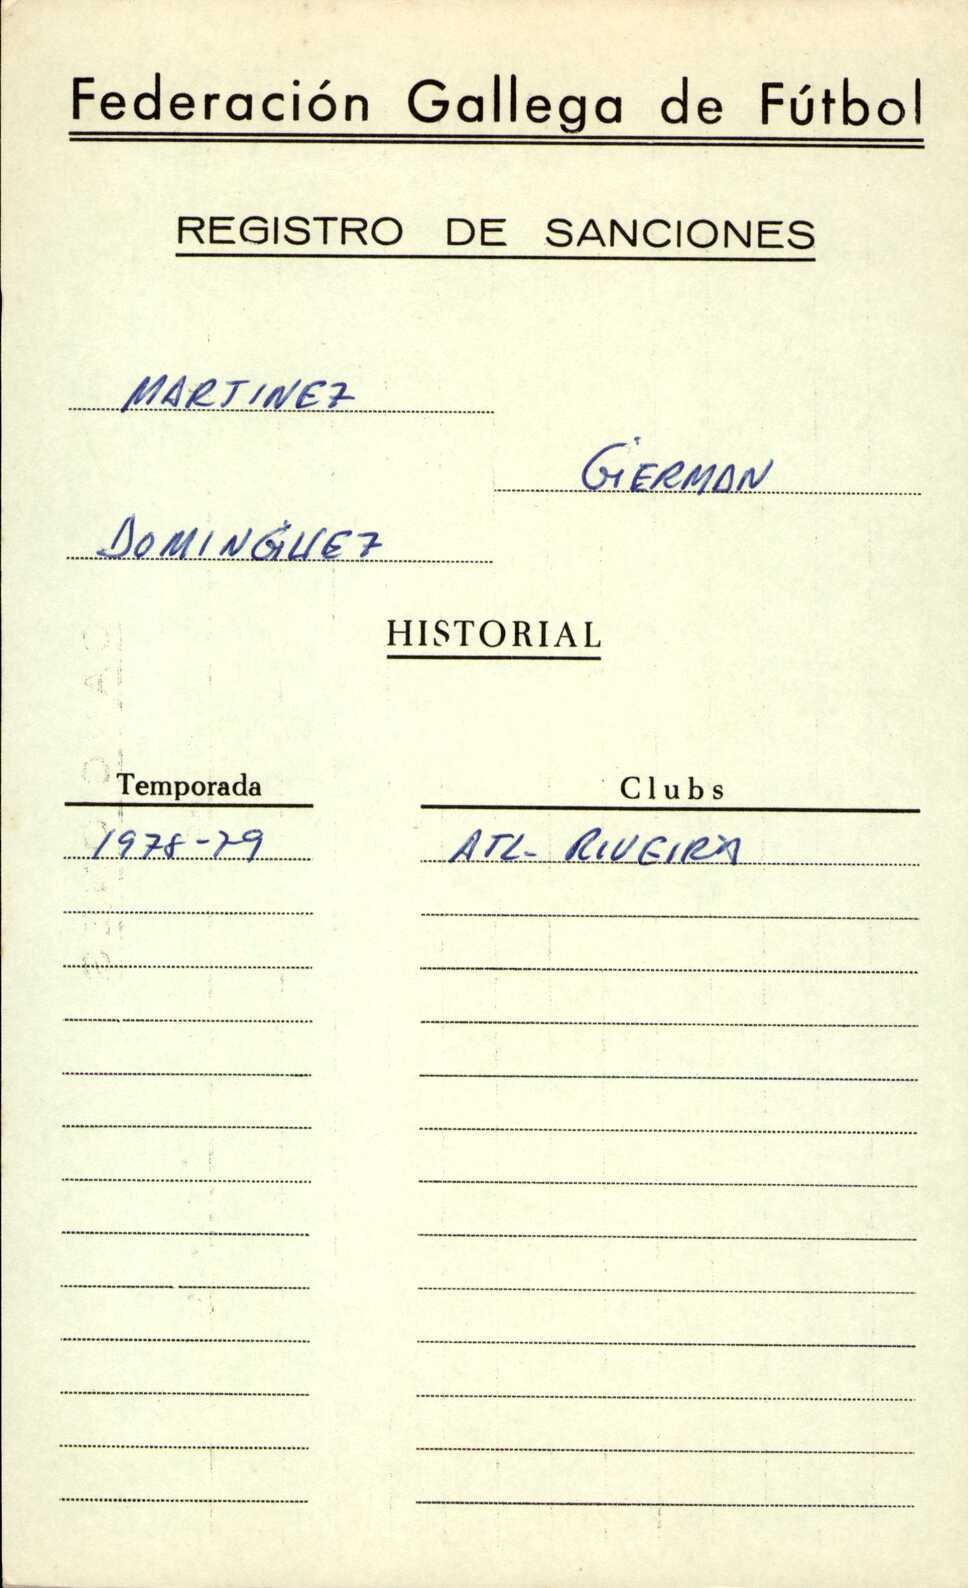 Federación Gallega de Fútbol
REGISTRO DE SANCIONES
MARTINEZ
GERMAN
DOMINGUEZ
HISTORIAL
Temporada Clubs
1978-79 ATL- RIVEIRA